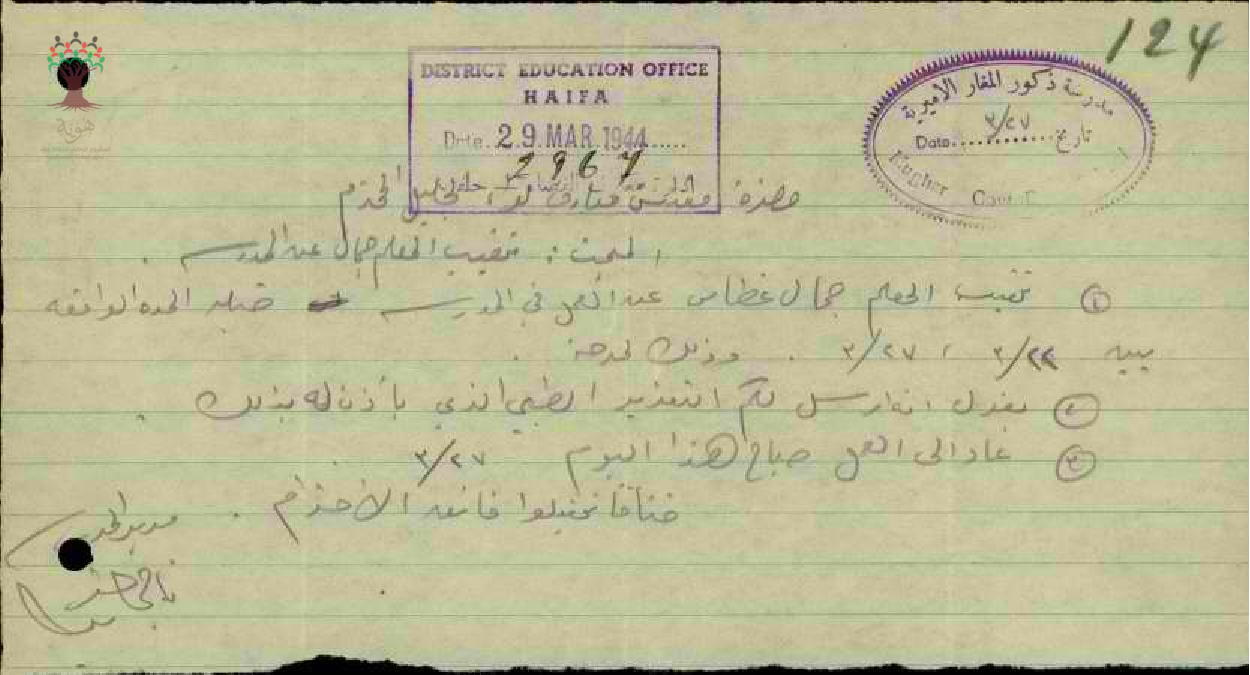 124
هوية
DISTRICT EDUCATION OFFICE
HAIFA
Date. 29 MAR 1944
2967
مدرسة ذكور المغار الاميرية
Date ٣/٢٧ تاريخ
Mughar
حضرة مفتش معارف لواء الجليل المحترم
المبحث : تغيب المعلم جمال عن المدرسة .
١ تغيب المعلم جمال غطاس عن العمل في المدرسة خلال المدة الواقعة
بين ٣/٢٤ ، ٣/٢٧ . وذلك لمرضه .
٢ يقول انه ارسل لكم التقرير الطبي الذي يأذن له بذلك .
٣ عاد الى العمل صباح هذا اليوم ٣/٢٧
ختاما تقبلوا فائق الاحترام .
مدير المدرسة
ناجي